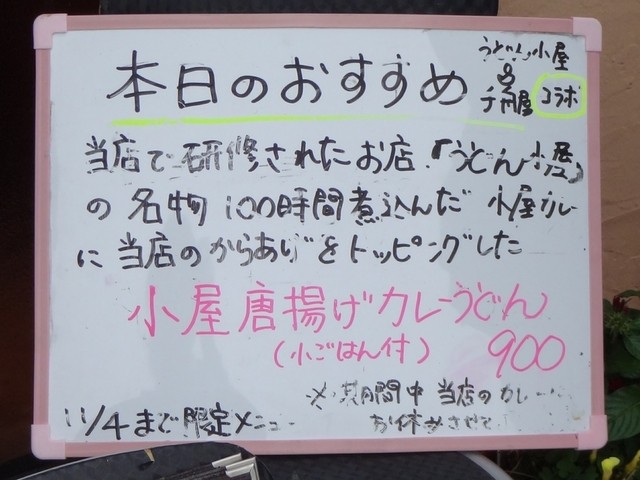 本日のおすすめ
うどん小屋
&
千舟屋 コラボ
当店で研修されたお店「うどん小屋」
の名物100時間煮込んだ小屋カレー
に当店のからあげをトッピングした
小屋唐揚げカレーうどん
(小ごはん付) 900
※期間中当店のカレー
お休みさせて
11/4まで限定メニュー